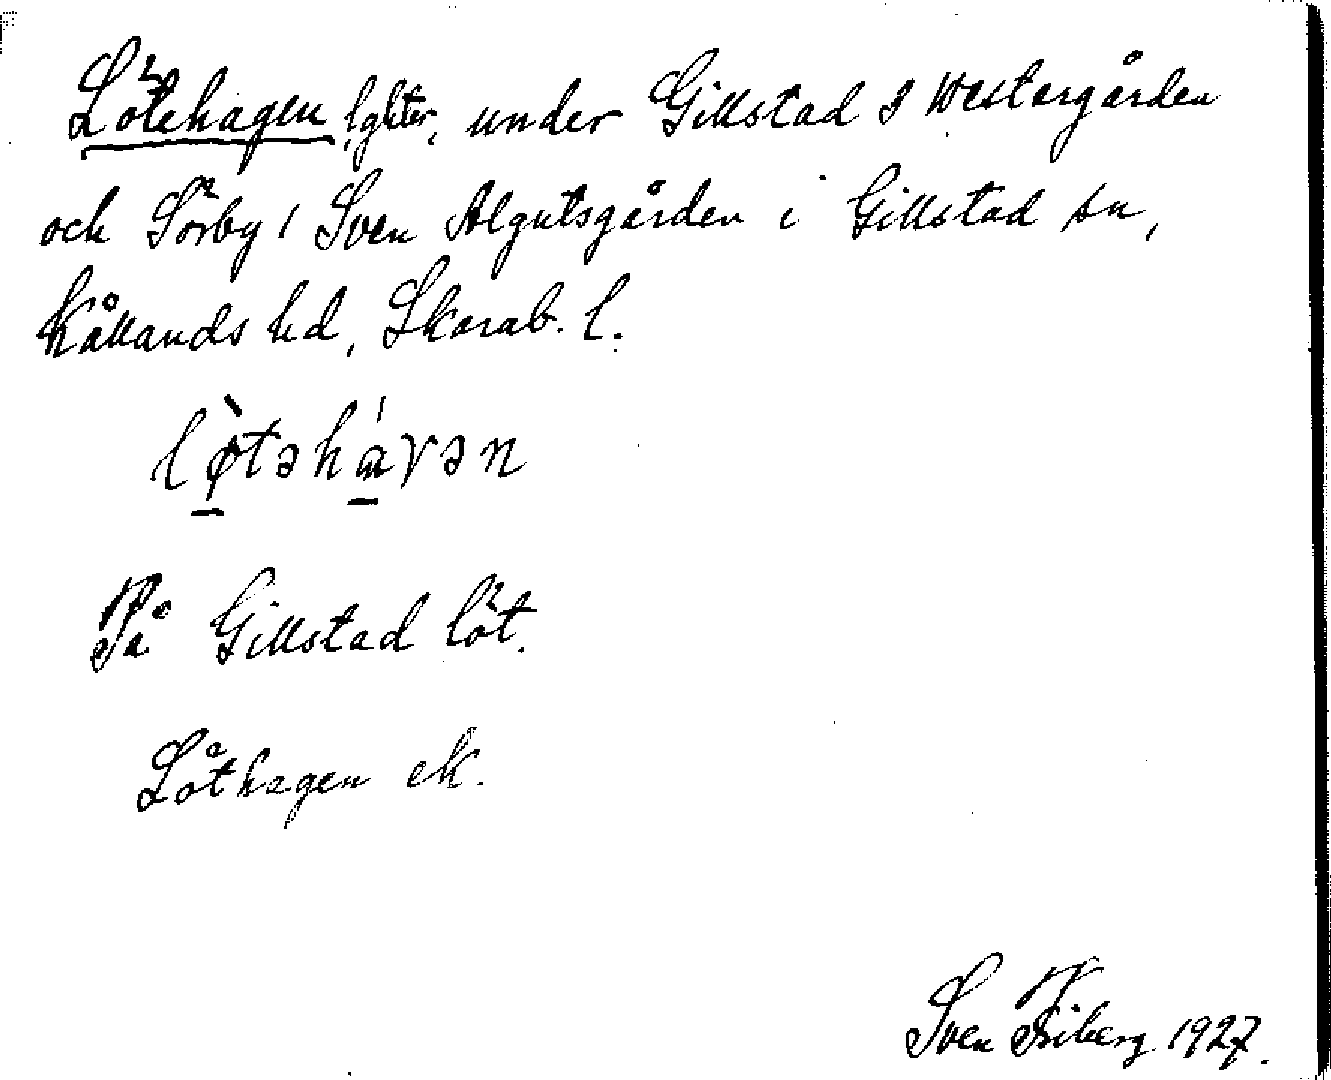 Lötehagen, lghter, under Gillstad 3 Westergården
och Sörby 1 Sven Algutsgården i Gillstad sn,
Kållands hd, Skarab. l.
lø̀təhá̱vən
På Gillstad löt.
Löthagen ek.
Sven Friberg 1927.